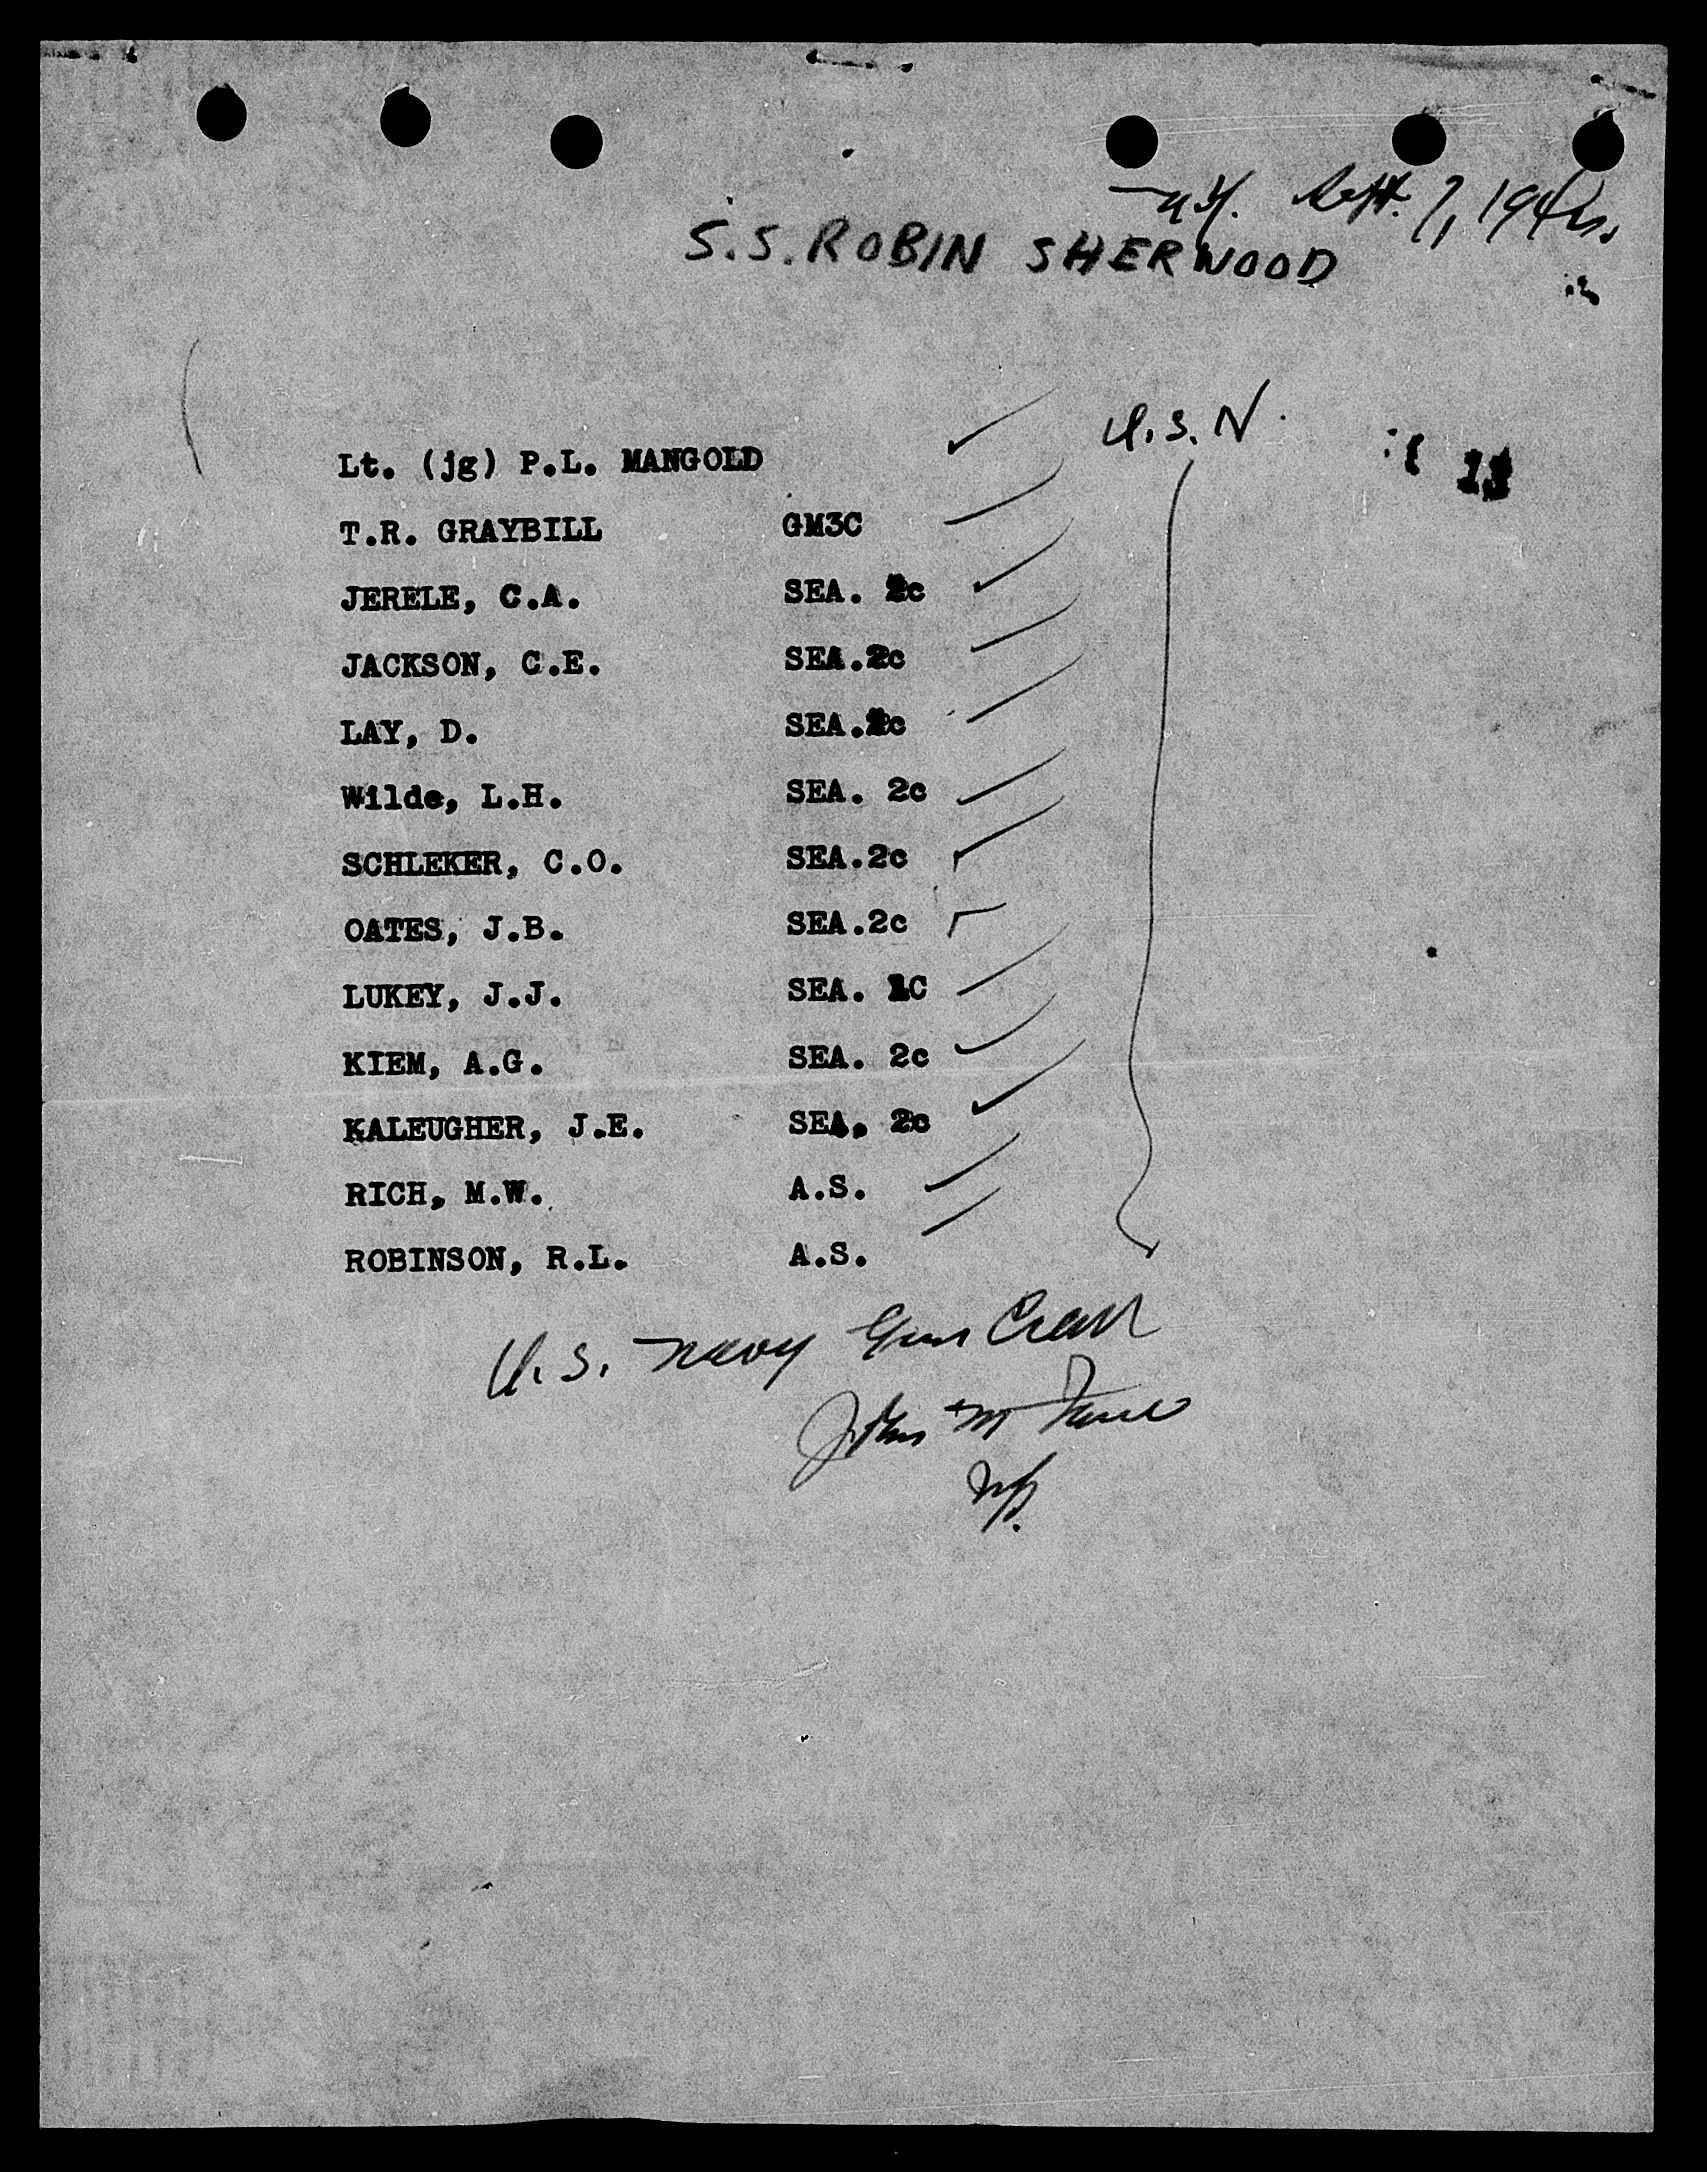 N.Y. Sept. 7, 194
S.S. ROBIN SHERWOOD
U.S.N.
Lt. (jg) P.L. MANGOLD
T.R. GRAYBILL GM3C
JERELE, C.A. SEA. 2c
JACKSON, C.E. SEA.2c
LAY, D. SEA.2c
Wilde, L.H. SEA. 2c
SCHLEKER, C.O. SEA.2c
OATES, J.B. SEA.2c
LUKEY, J.J. SEA. 1C
KIEM, A.G. SEA. 2c
KALEUGHER, J.E. SEA. 2c
RICH, M.W. A.S.
ROBINSON, R.L. A.S.
U.S. Navy Gun Crew
John M